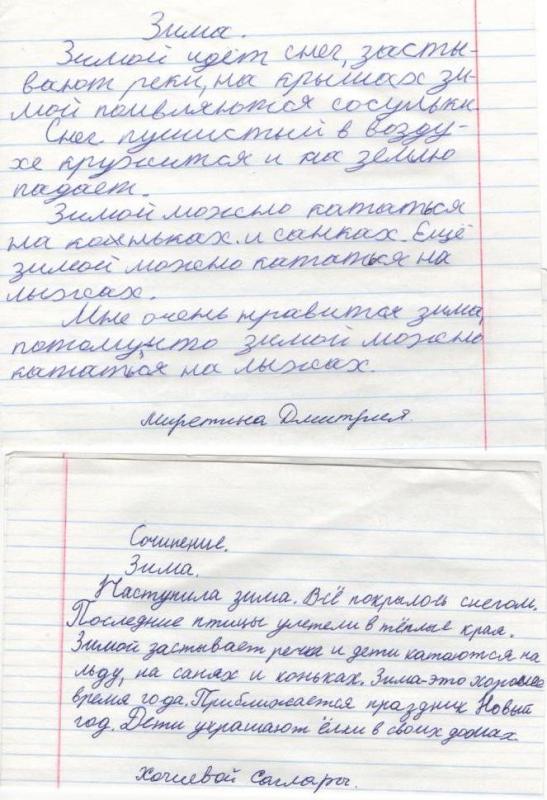 Зима.
Зимой идёт снег, засты-
вают реки, на крышах зи-
мой поивляются сосульки.
Снег пушистый в возду-
хе кружится и на землю
падает.
Зимой можно кататься
на коньках и санках. Ещё
зимой можно кататься на
лыжах.
Мне очень нравится зима,
потому,что зимой можно
кататься на лыжах.
Миретина Дмитрия.
Сочинение.
Зима.
Наступила зима. Всё покрылось снегом.
Последние птицы улетели в тёплые края.
Зимой застывает речка и дети катаются на
льду, на санях и коньках. Зима-это хорошее
время года. Приближается праздник Новый
год. Дети украшают ёлки в своих домах.
Хочиевой Саглары.